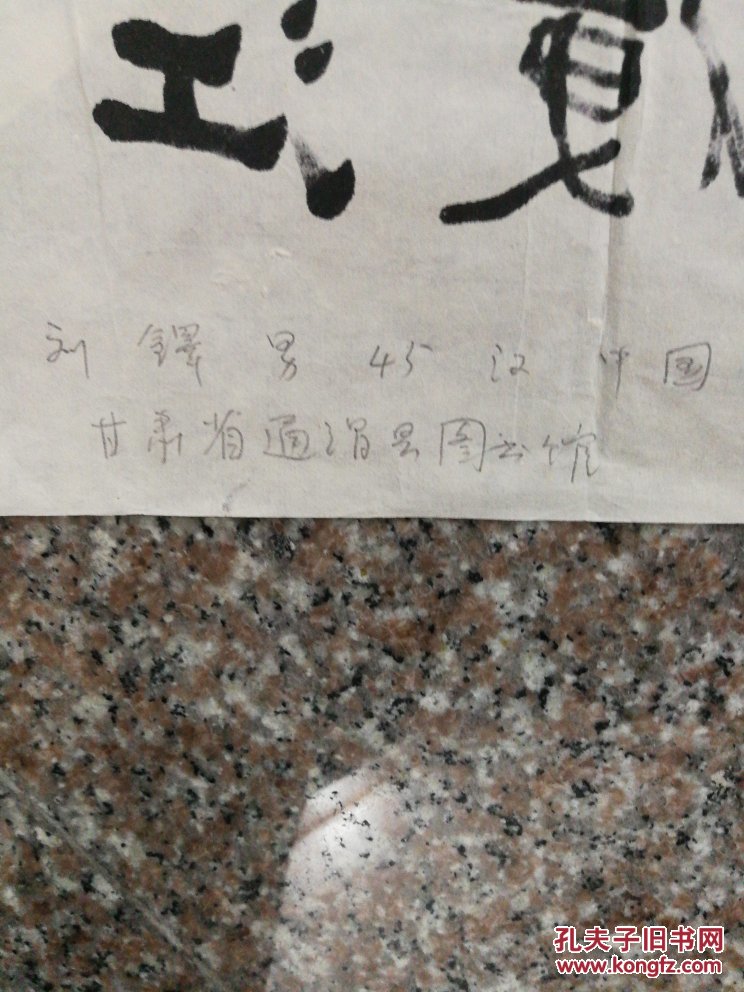 江夏
刘铎 男 45 汉 中国
甘肃省通渭县图书馆
孔夫子旧书网
www.kongfz.com